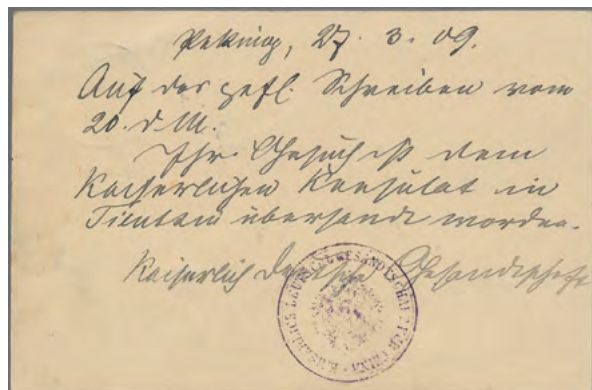 Peking, 27. 3. 09.
Auf das gefl. Schreiben vom
20. d M.
Ihr Gesuch ist dem
Kaiserlichen Konsulat in
Tientsin übersandt worden.
Kaiserlich Deutsche Gesandtschaft
KAISERLICH DEUTSCHE GESANDTSCHAFT FÜR CHINA